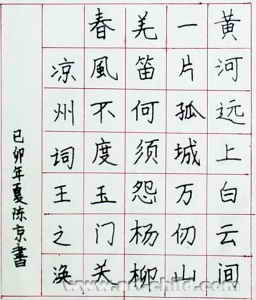 黄河远上白云间
一片孤城万仞山
羌笛何须怨杨柳
春風不度玉门关
凉州词王之涣
己卯年夏陈京書